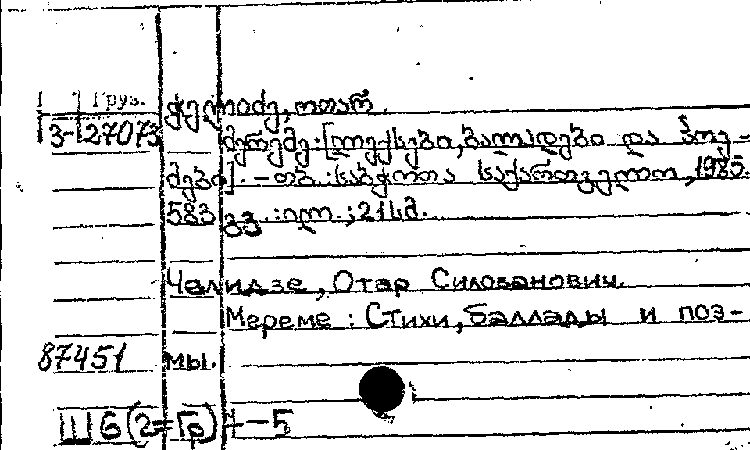 Груз.
3-27073 ჭელიძე, ოთარ.
მერემე: [ლექსები, ბალადები და პოე-
მები]. – თბ.: საბჭოთა საქართველო, 1985.
583 გვ. : ილ. ; 21 სმ.
Челидзе, Отар Силованович.
Мереме : Стихи, баллады и поэ-
87451 мы.
Ш6(2=Гр)1-5